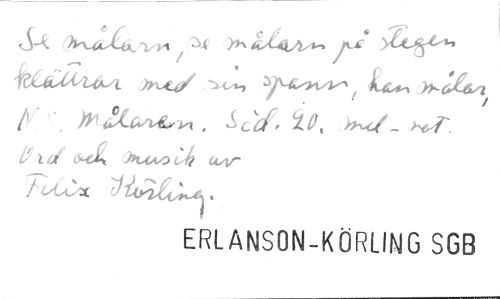 Se målarn, se målarn på stegen
klättrar med sin spann, han målar,
Målaren. Sid. 20. mel-rot.
Ord och musik av
Felix Körling.
ERLANSON-KÖRLING SGB